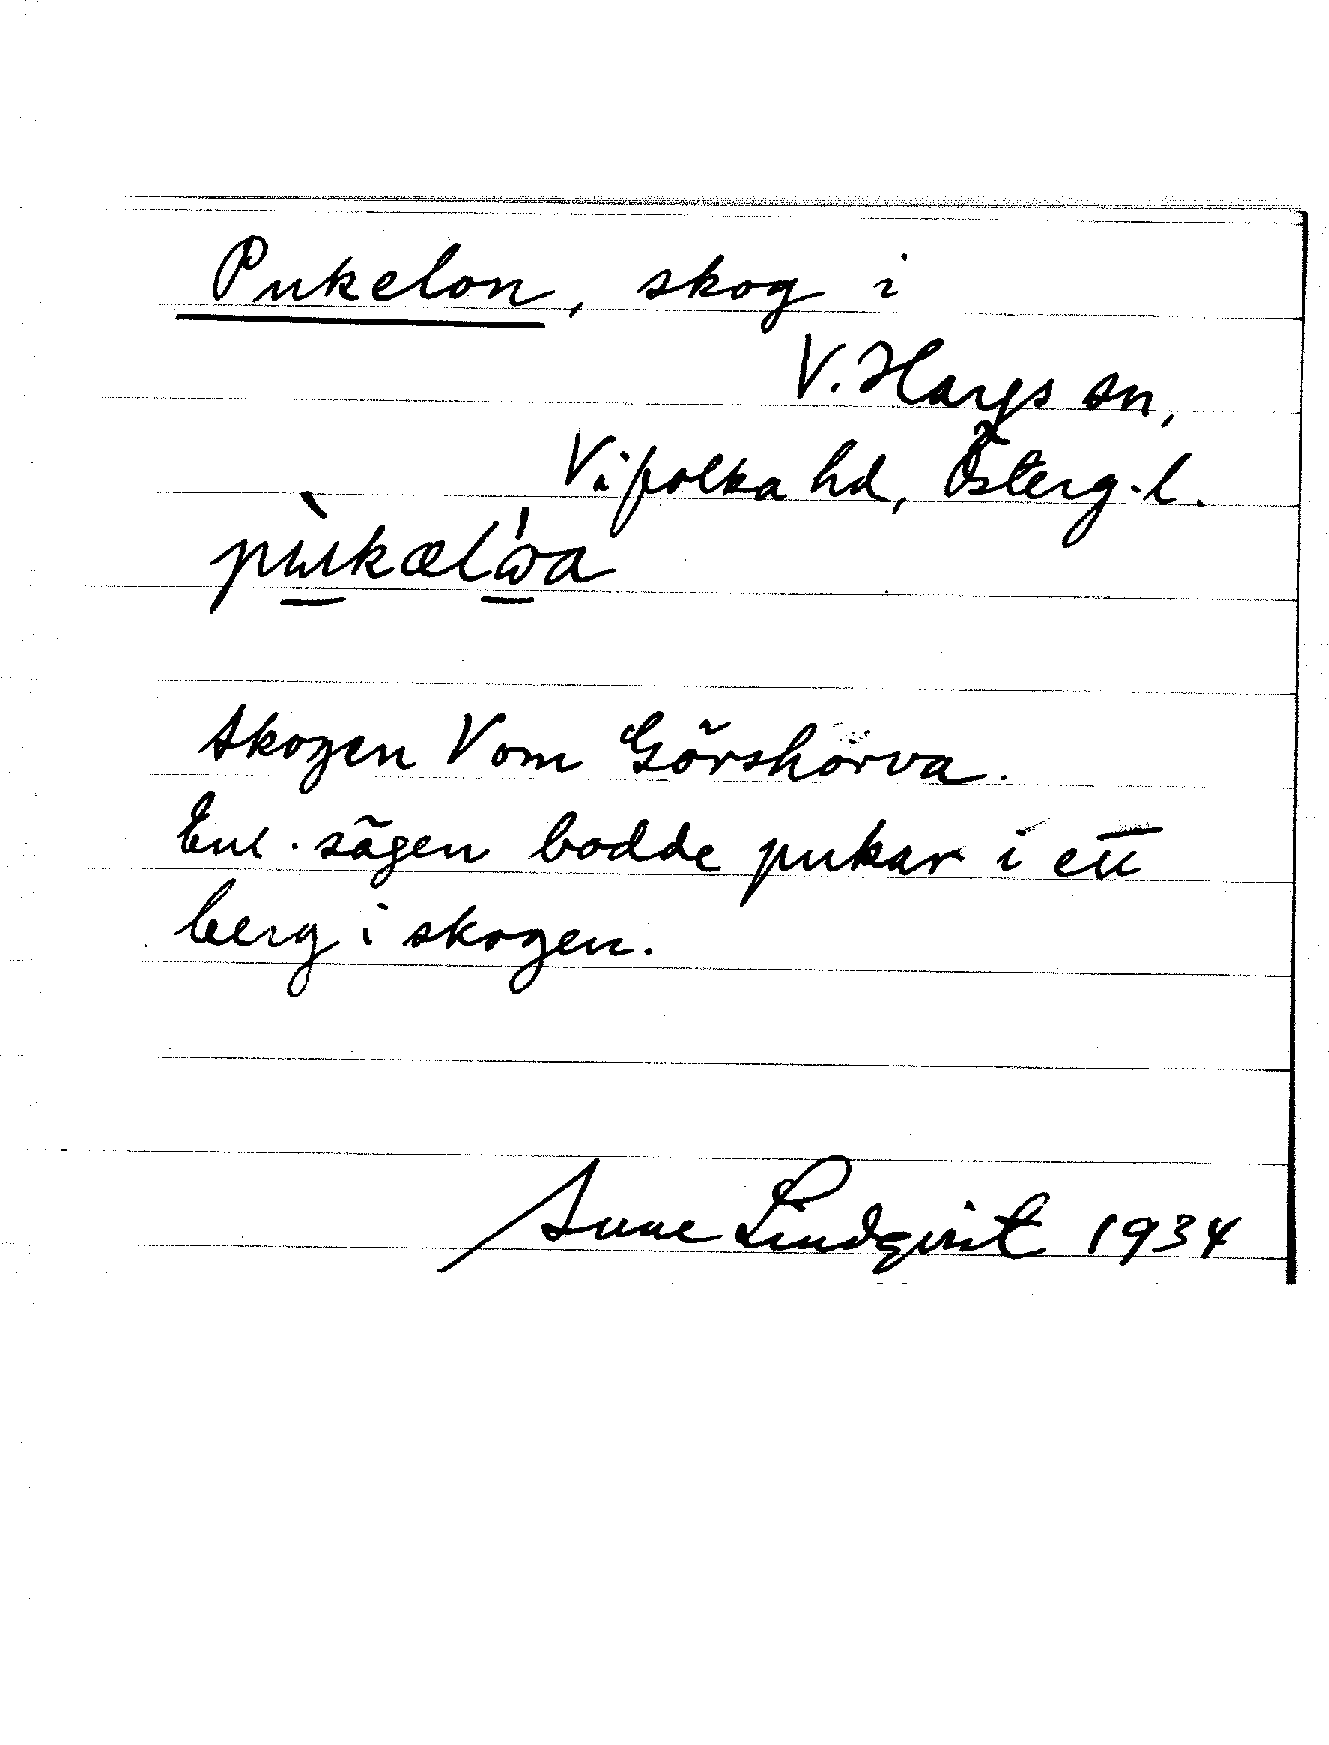 Pukelon, skog i
V. Hargs sn,
Vifolka hd, Österg.l.
Skogen V om Görshorva.
Enl. sägen bodde pukar i ett
berg i skogen.
Sune Lindqvist 1934